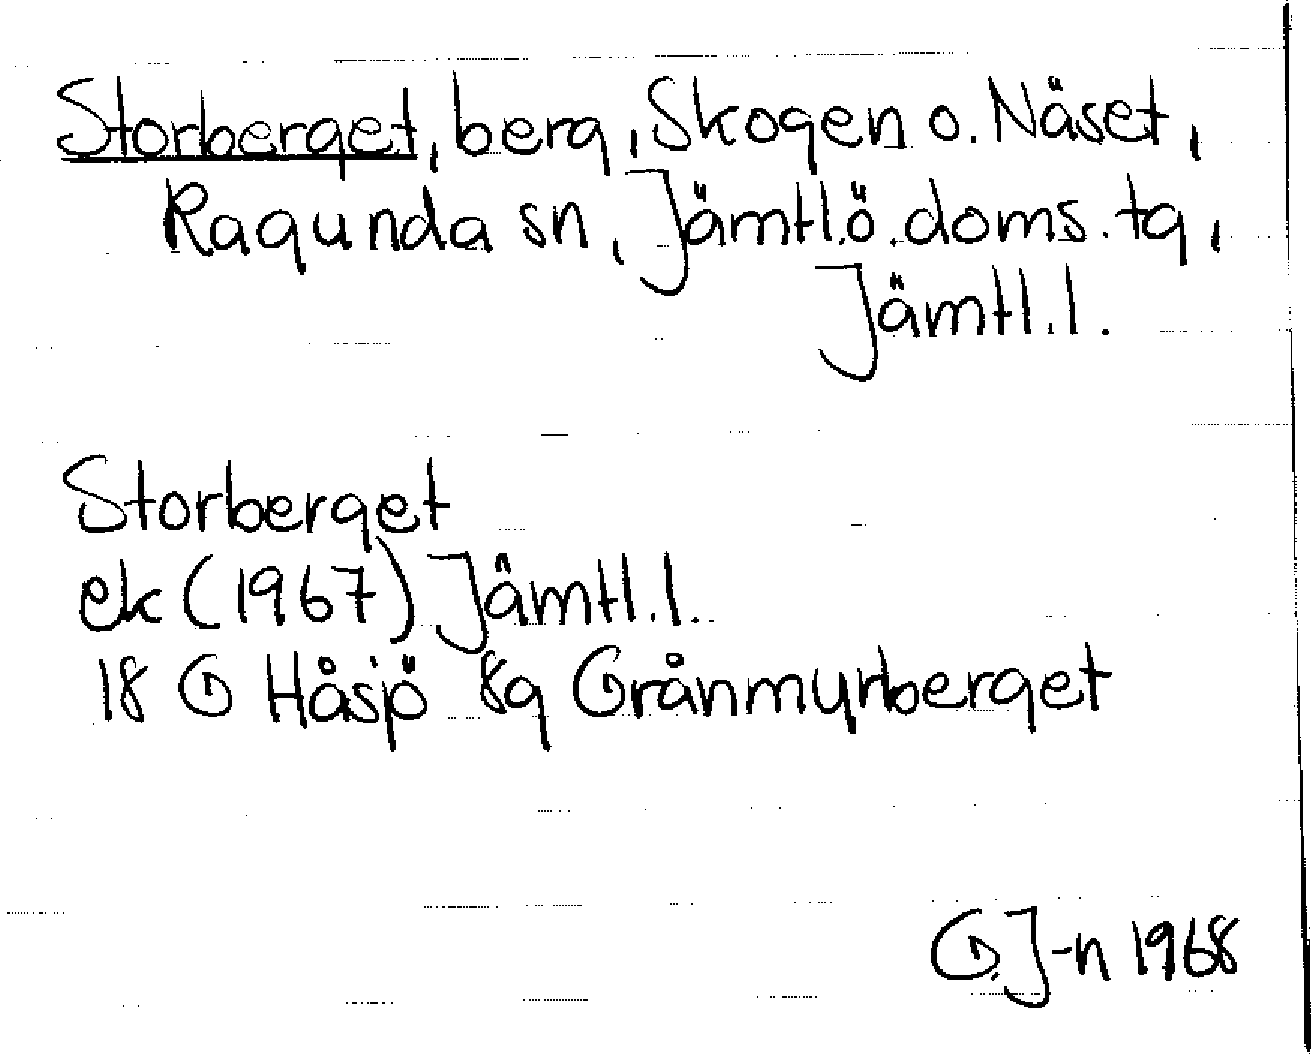 Storberget, berg, Skogen o. Näset,
Ragunda sn, Jämtl.ö.doms.tg,
Jämtl.l.
Storberget
ek (1967) Jämtl.l.
18 G Håsjö 8g Grånmyrberget
G.J-n 1968